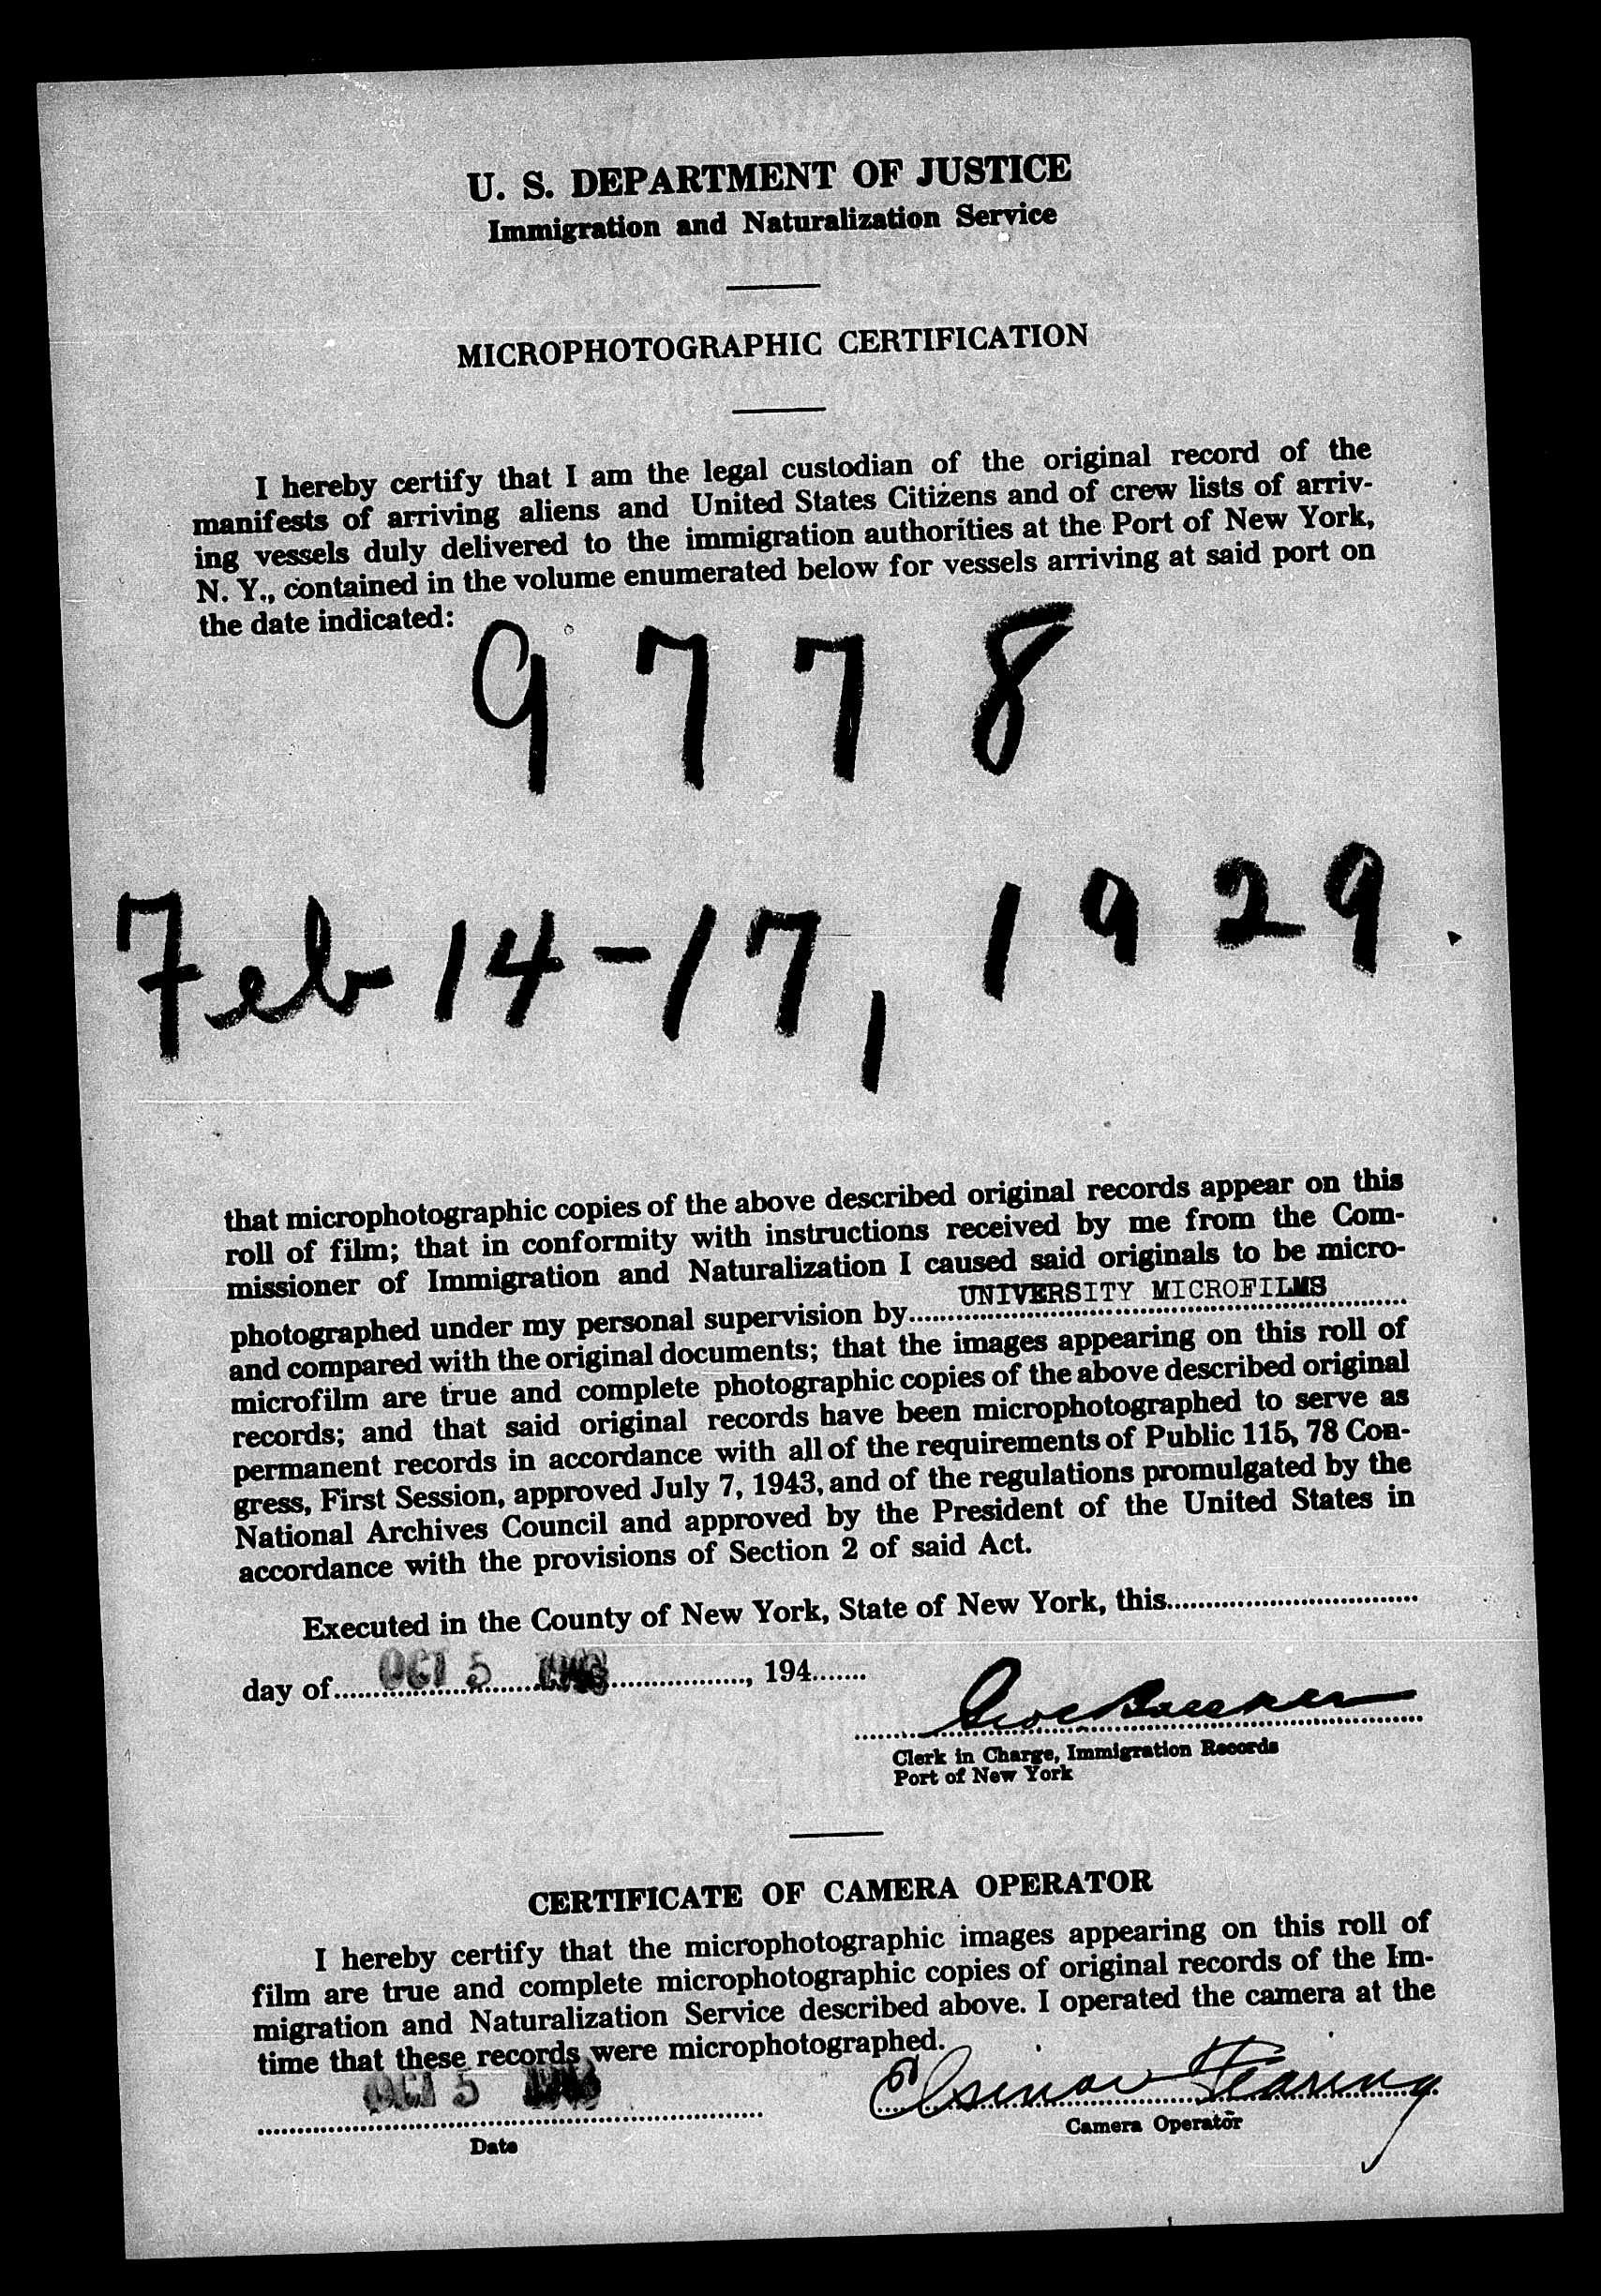 U. S. DEPARTMENT OF JUSTICE
Immigration and Naturalization Service
MICROPHOTOGRAPHIC CERTIFICATION
I hereby certify that I am the legal custodian of the original record of the
manifests of arriving aliens and United States Citizens and of crew lists of arriv-
ing vessels duly delivered to the immigration authorities at the Port of New York,
N. Y., contained in the volume enumerated below for vessels arriving at said port on
the date indicated:
9778
Feb 14-17, 1929.
that microphotographic copies of the above described original records appear on this
roll of film; that in conformity with instructions received by me from the Com-
missioner of Immigration and Naturalization I caused said originals to be micro-
photographed under my personal supervision by UNIVERSITY MICROFILMS
and compared with the original documents; that the images appearing on this roll of
microfilm are true and complete photographic copies of the above described original
records; and that said original records have been microphotographed to serve as
permanent records in accordance with all of the requirements of Public 115, 78 Con-
gress, First Session, approved July 7, 1943, and of the regulations promulgated by the
National Archives Council and approved by the President of the United States in
accordance with the provisions of Section 2 of said Act.
Executed in the County of New York, State of New York, this
day of OCT 5 , 194
Clerk in Charge, Immigration Records
Port of New York
CERTIFICATE OF CAMERA OPERATOR
I hereby certify that the microphotographic images appearing on this roll of
film are true and complete microphotographic copies of original records of the Im-
migration and Naturalization Service described above. I operated the camera at the
time that these records were microphotographed.
OCT 5
Date
Camera Operator